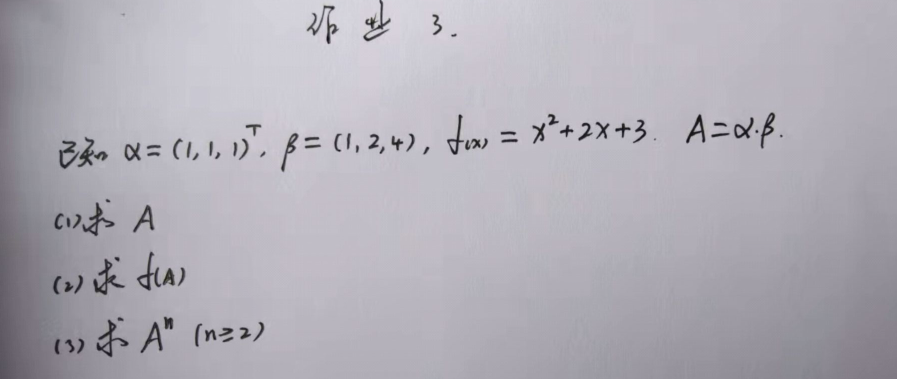 作业 3.
已知 α=(1,1,1)ᵀ, β=(1,2,4), f(x)=x²+2x+3. A=α·β.
(1)求 A
(2)求 f(A)
(3)求 Aⁿ (n≥2)